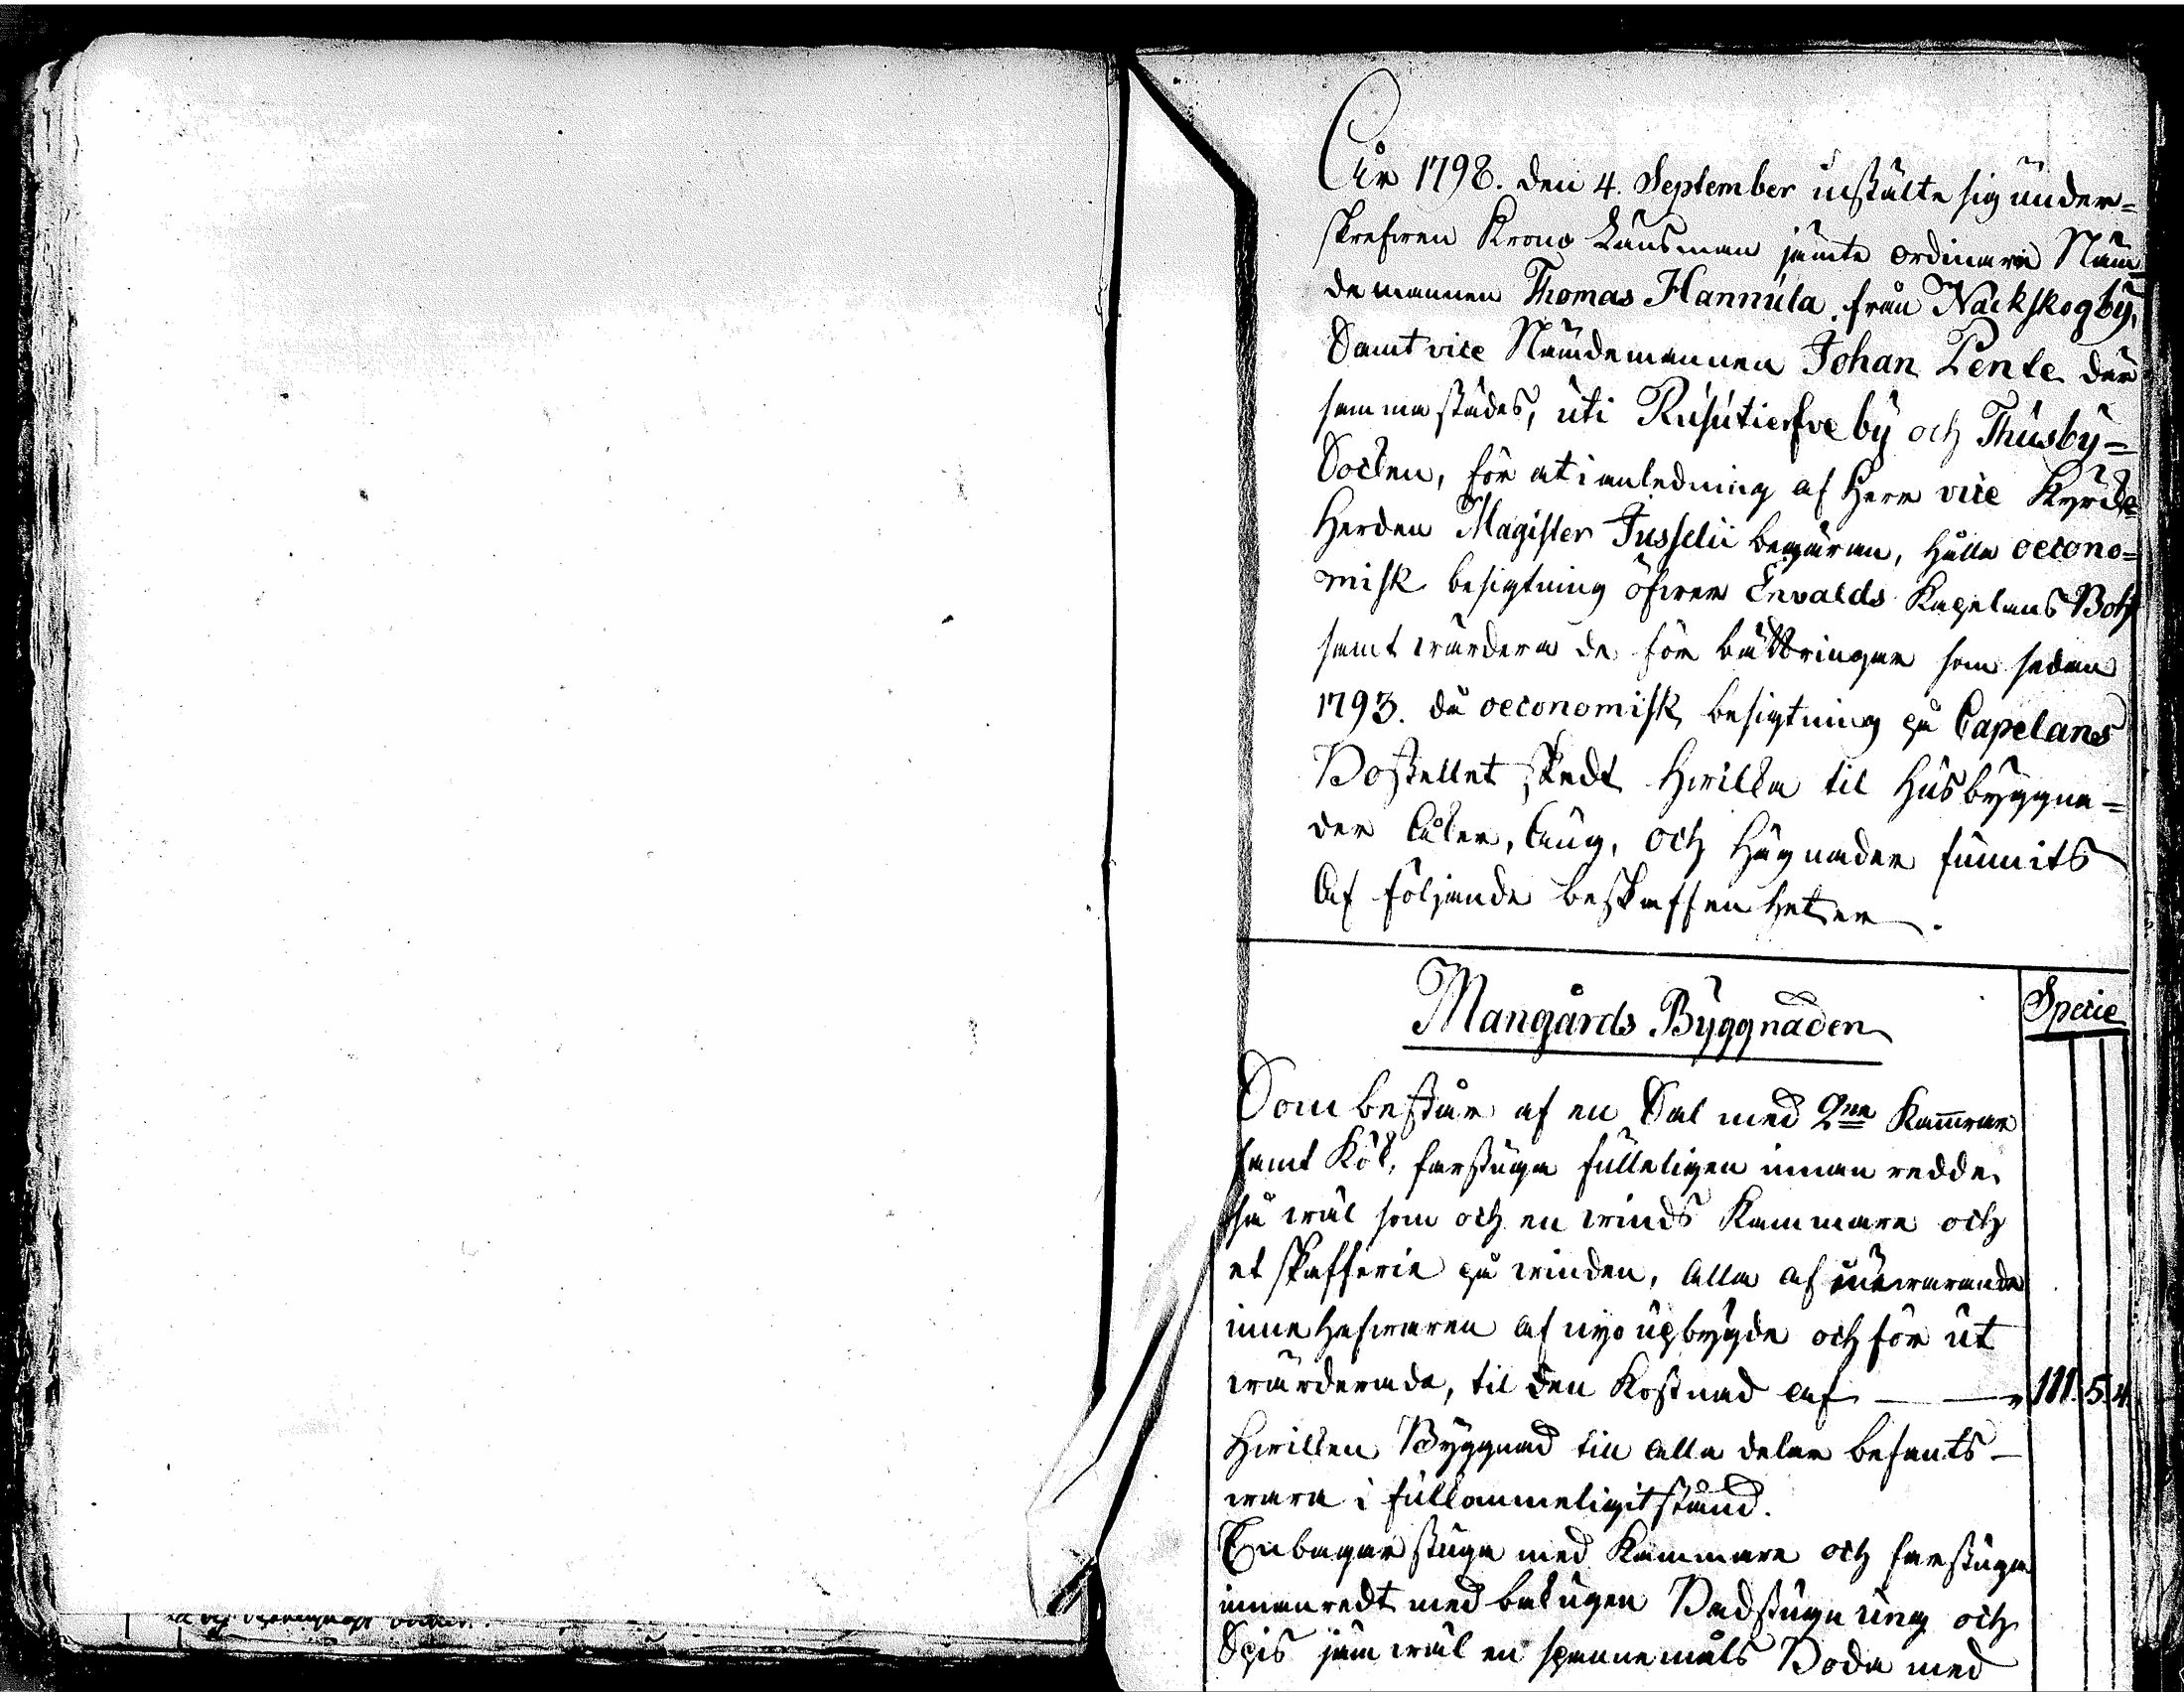 År 1798. den 4. September instälte sig under=
skrefven Krono Länsman jämte ordinarie Näm
demannen Thomas Hannula från Nackskog by,
Samt vice Nämdemannen Johan Pente där
sammastädes, uti Rusutierfve by och Thusby=
Socken, för at i anledning af Herr vice Kyrck=
Herden Magister Jusselii begäran, hålla oecono=
misk besigtning öfwer Envalds Kapelans Bohl
samt wärdera de förbättringar som sedan
1793. då oeconomisk besigtning på Capelans
Bostellet skedt hwilka til Husbyggna=
der Åker, Äng, och Hägnader funnits
Af följande beskaffenheter.
Mangårds Byggnaden
Specie
Som består af en Sal med 2ne Kamrar
samt Kök, farstuga fulleligen innanredde,
så wäl som och en winds Kammare och
et skafferie på winden, alla af nuwarande
innehafwaren af nyo upbygde och för ut
wärderade, til den Kostnad af — 111. 5. 4.
Hwilken Byggnad till alla delar befants
wara i fullommeligit stånd.
En bagarstuga med Kammare och farstuga
innanredt med bakugen Badstugu ung och
Spis jämwäl en spannemåls Boda med